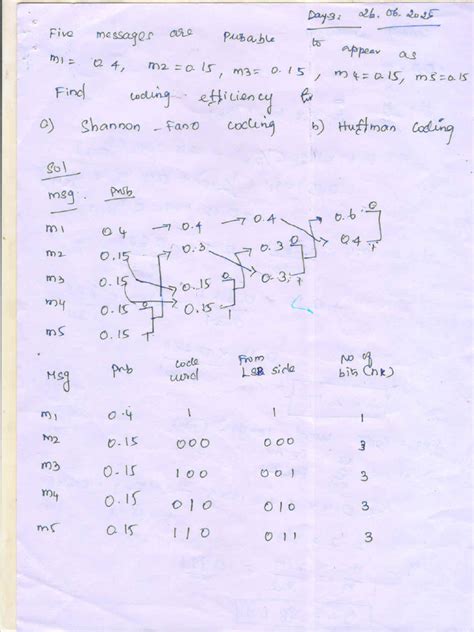 Day3: 26.06.2025
Five messages are probable to appear as
m1 = 0.4, m2 = 0.15, m3 = 0.15, m4 = 0.15, m5 = 0.15
Find coding efficiency for
a) Shannon-Fano coding b) Huffman coding
Sol
msg. prob
m1 0.4 0.4 0.4 0.6 0
m2 0.15 0.3 0.3 0 0.4 1
m3 0.15 0.15 0 0.3 1
m4 0.15 0 0.15 1
m5 0.15 1
Msg prob code word From LSB side No of bits (nk)
m1 0.4 1 1 1
m2 0.15 000 000 3
m3 0.15 100 001 3
m4 0.15 010 010 3
m5 0.15 110 011 3